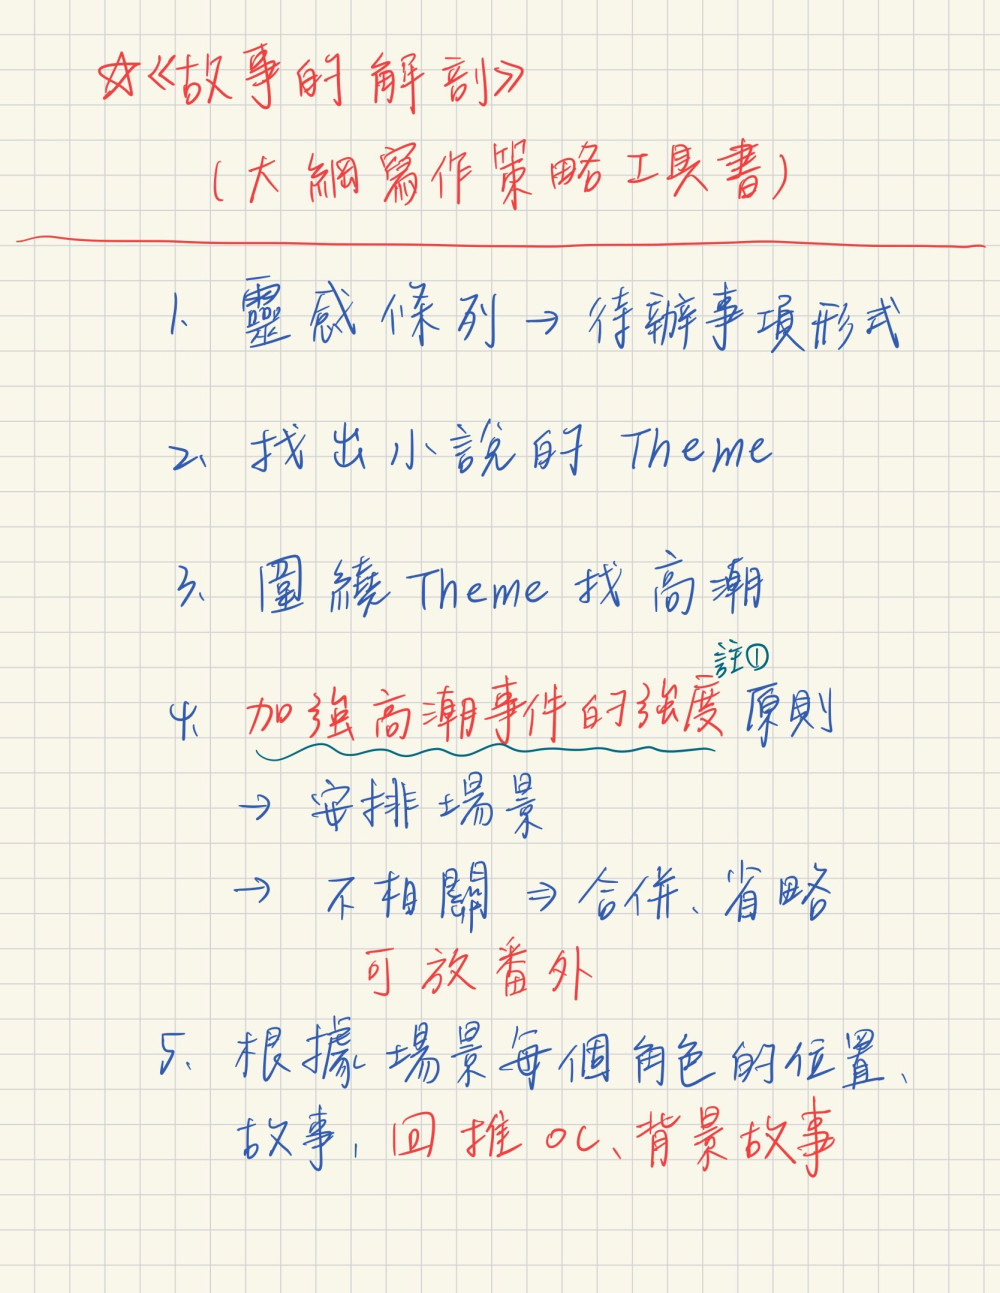 ☆《故事的解剖》
(大綱寫作策略工具書)
1、靈感條列→待辦事項形式
2、找出小說的 Theme
3、圍繞 Theme 找高潮
註①
4、加強高潮事件的強度原則
→ 安排場景
→ 不相關 ⇒ 合併、省略
可放番外
5、根據場景每個角色的位置、
故事,回推 OC、背景故事